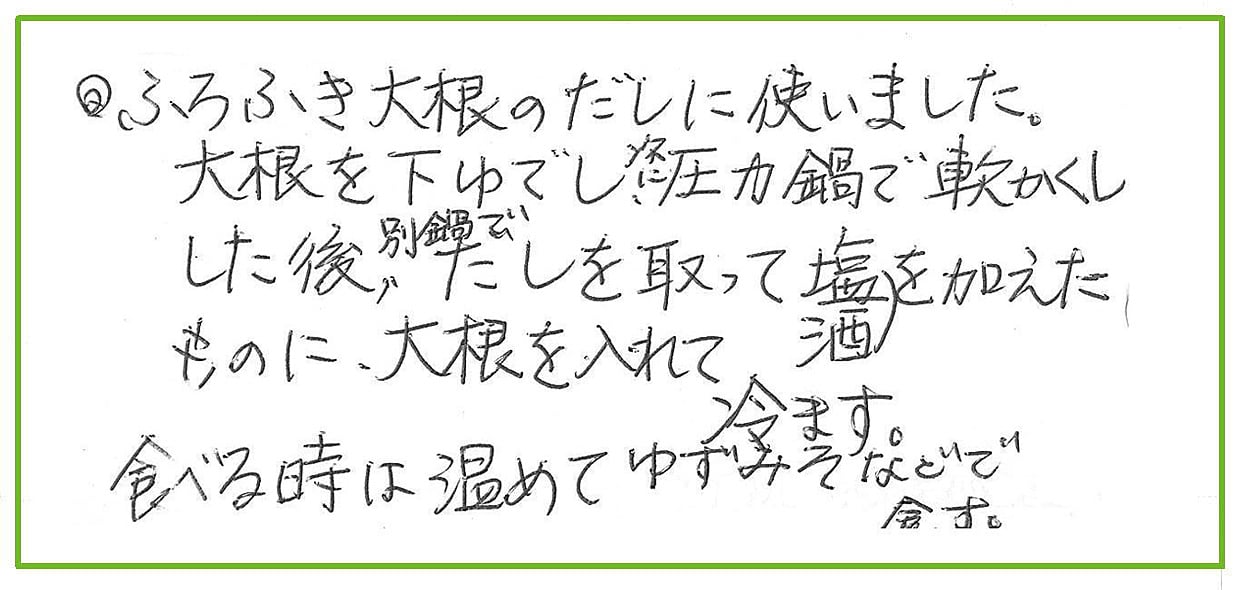 ◎ふろふき大根のだしに使いました。
大根を下ゆでし 圧力鍋で軟かくし
した後、別鍋でだしを取って塩、酒を加えた
ものに、大根を入れて
冷ます。
食べる時は温めてゆずみそなどで
す。